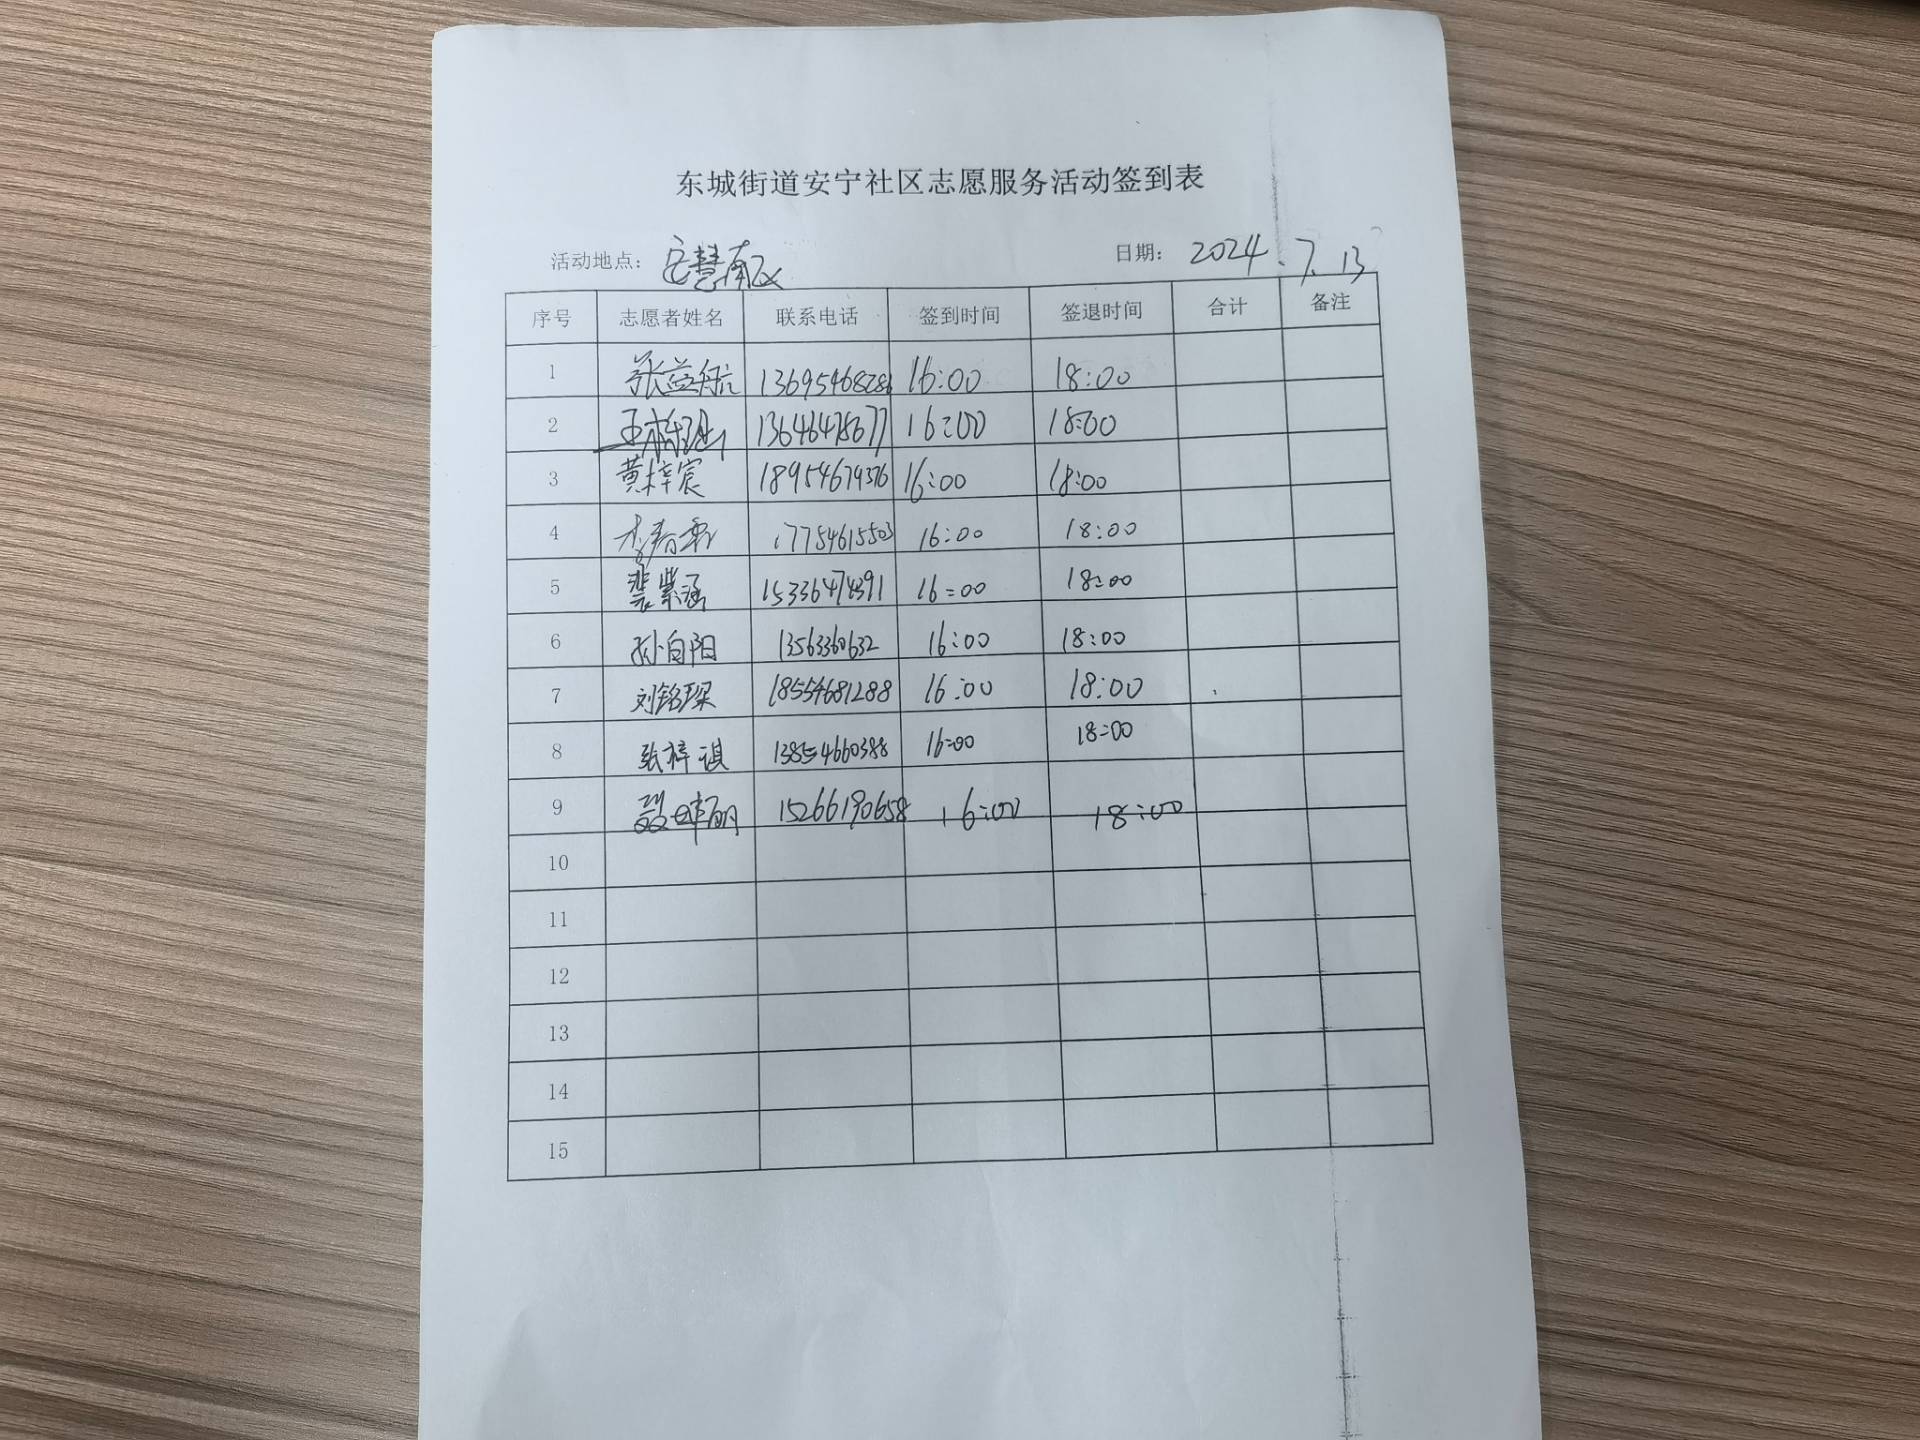 东城街道安宁社区志愿服务活动签到表
活动地点： 安慧南区 日期： 2024.7.13
序号 志愿者姓名 联系电话 签到时间 签退时间 合计 备注
1 张益航 13695468286 16:00 18:00
2 13646478677 16:00 18:00
3 黄梓宸 18954674376 16:00 18:00
4 17754615503 16:00 18:00
5 裴紫涵 15336474391 16:00 18:00
6 孙自阳 13563360632 16:00 18:00
7 刘铭琛 18554681288 16:00 18:00
8 张梓祺 13854660388 16:00 18:00
9 15266190658 16:00 18:00
10
11
12
13
14
15